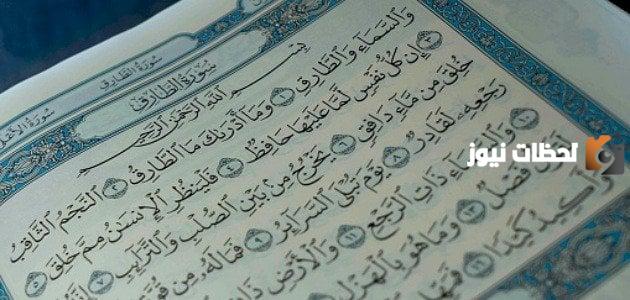 سُورَةُ الطَّارِقِ
سُورَةُ
سُورَةُ الطَّارِقِ
بِسْمِ اللَّهِ الرَّحْمَٰنِ الرَّحِيمِ
وَٱلسَّمَآءِ وَٱلطَّارِقِ ١ وَمَآ أَدْرَىٰكَ مَا ٱلطَّارِقُ ٢ ٱلنَّجْمُ ٱلثَّاقِبُ
٣ إِن كُلُّ نَفْسٍ لَّمَّا عَلَيْهَا حَافِظٌ ٤ فَلْيَنظُرِ ٱلْإِنسَٰنُ مِمَّ خُلِقَ ٥
خُلِقَ مِن مَّآءٍ دَافِقٍ ٦ يَخْرُجُ مِنۢ بَيْنِ ٱلصُّلْبِ وَٱلتَّرَآئِبِ ٧
رَجْعِهِۦ لَقَادِرٌ ٨ يَوْمَ تُبْلَى ٱلسَّرَآئِرُ ٩ فَمَا لَهُۥ مِن
١٠ وَٱلسَّمَآءِ ذَاتِ ٱلرَّجْعِ ١١ وَٱلْأَرْضِ ذَاتِ
لَقَوْلٌ فَصْلٌ ١٣ وَمَا هُوَ بِٱلْهَزْلِ
وَأَكِيدُ كَيْدًا ١٦
لحظات نيوز